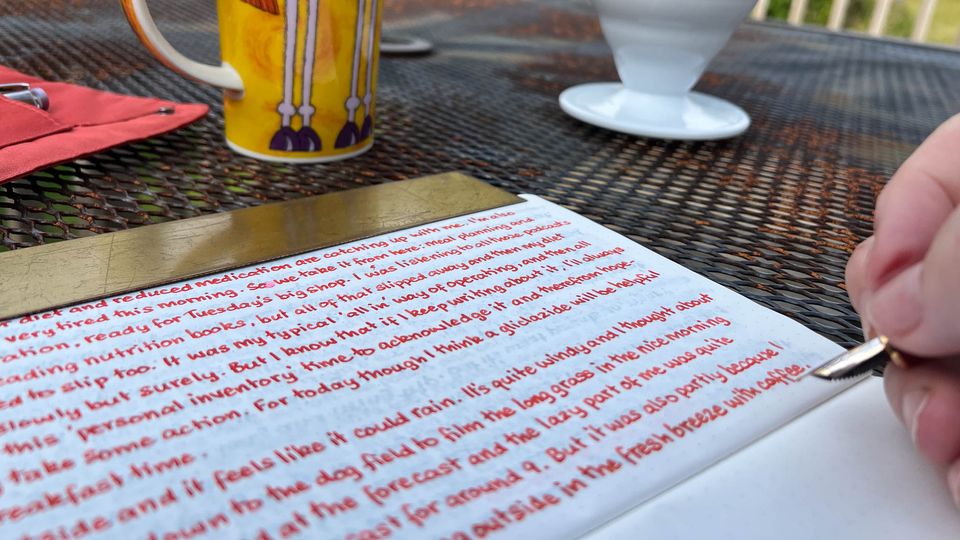 diet and reduced medication are catching up with me. I'm also
very tired this morning. So we take it from here. meal planning and
ation, ready for Tuesday's big shop. I was listening to all those podcasts
eading nutrition books, but all of that slipped away and then my diet
ed to slip too. It was my typical 'all in' way of operating, and then all
slowly but surely. But I know that if I keep writing about it, I'll always
this 'personal inventory' time to acknowledge it and therefore hope-
take some action. For today though I think a gliclazide will be helpful
reakfast time.
tside and it feels like it could rain. It's quite windy and I thought about
down to the dog field to film the long grass in the nice morning
d at the forecast and the lazy part of me was quite
cast for around 9. But it was also partly because I
g outside in the fresh breeze with coffee.